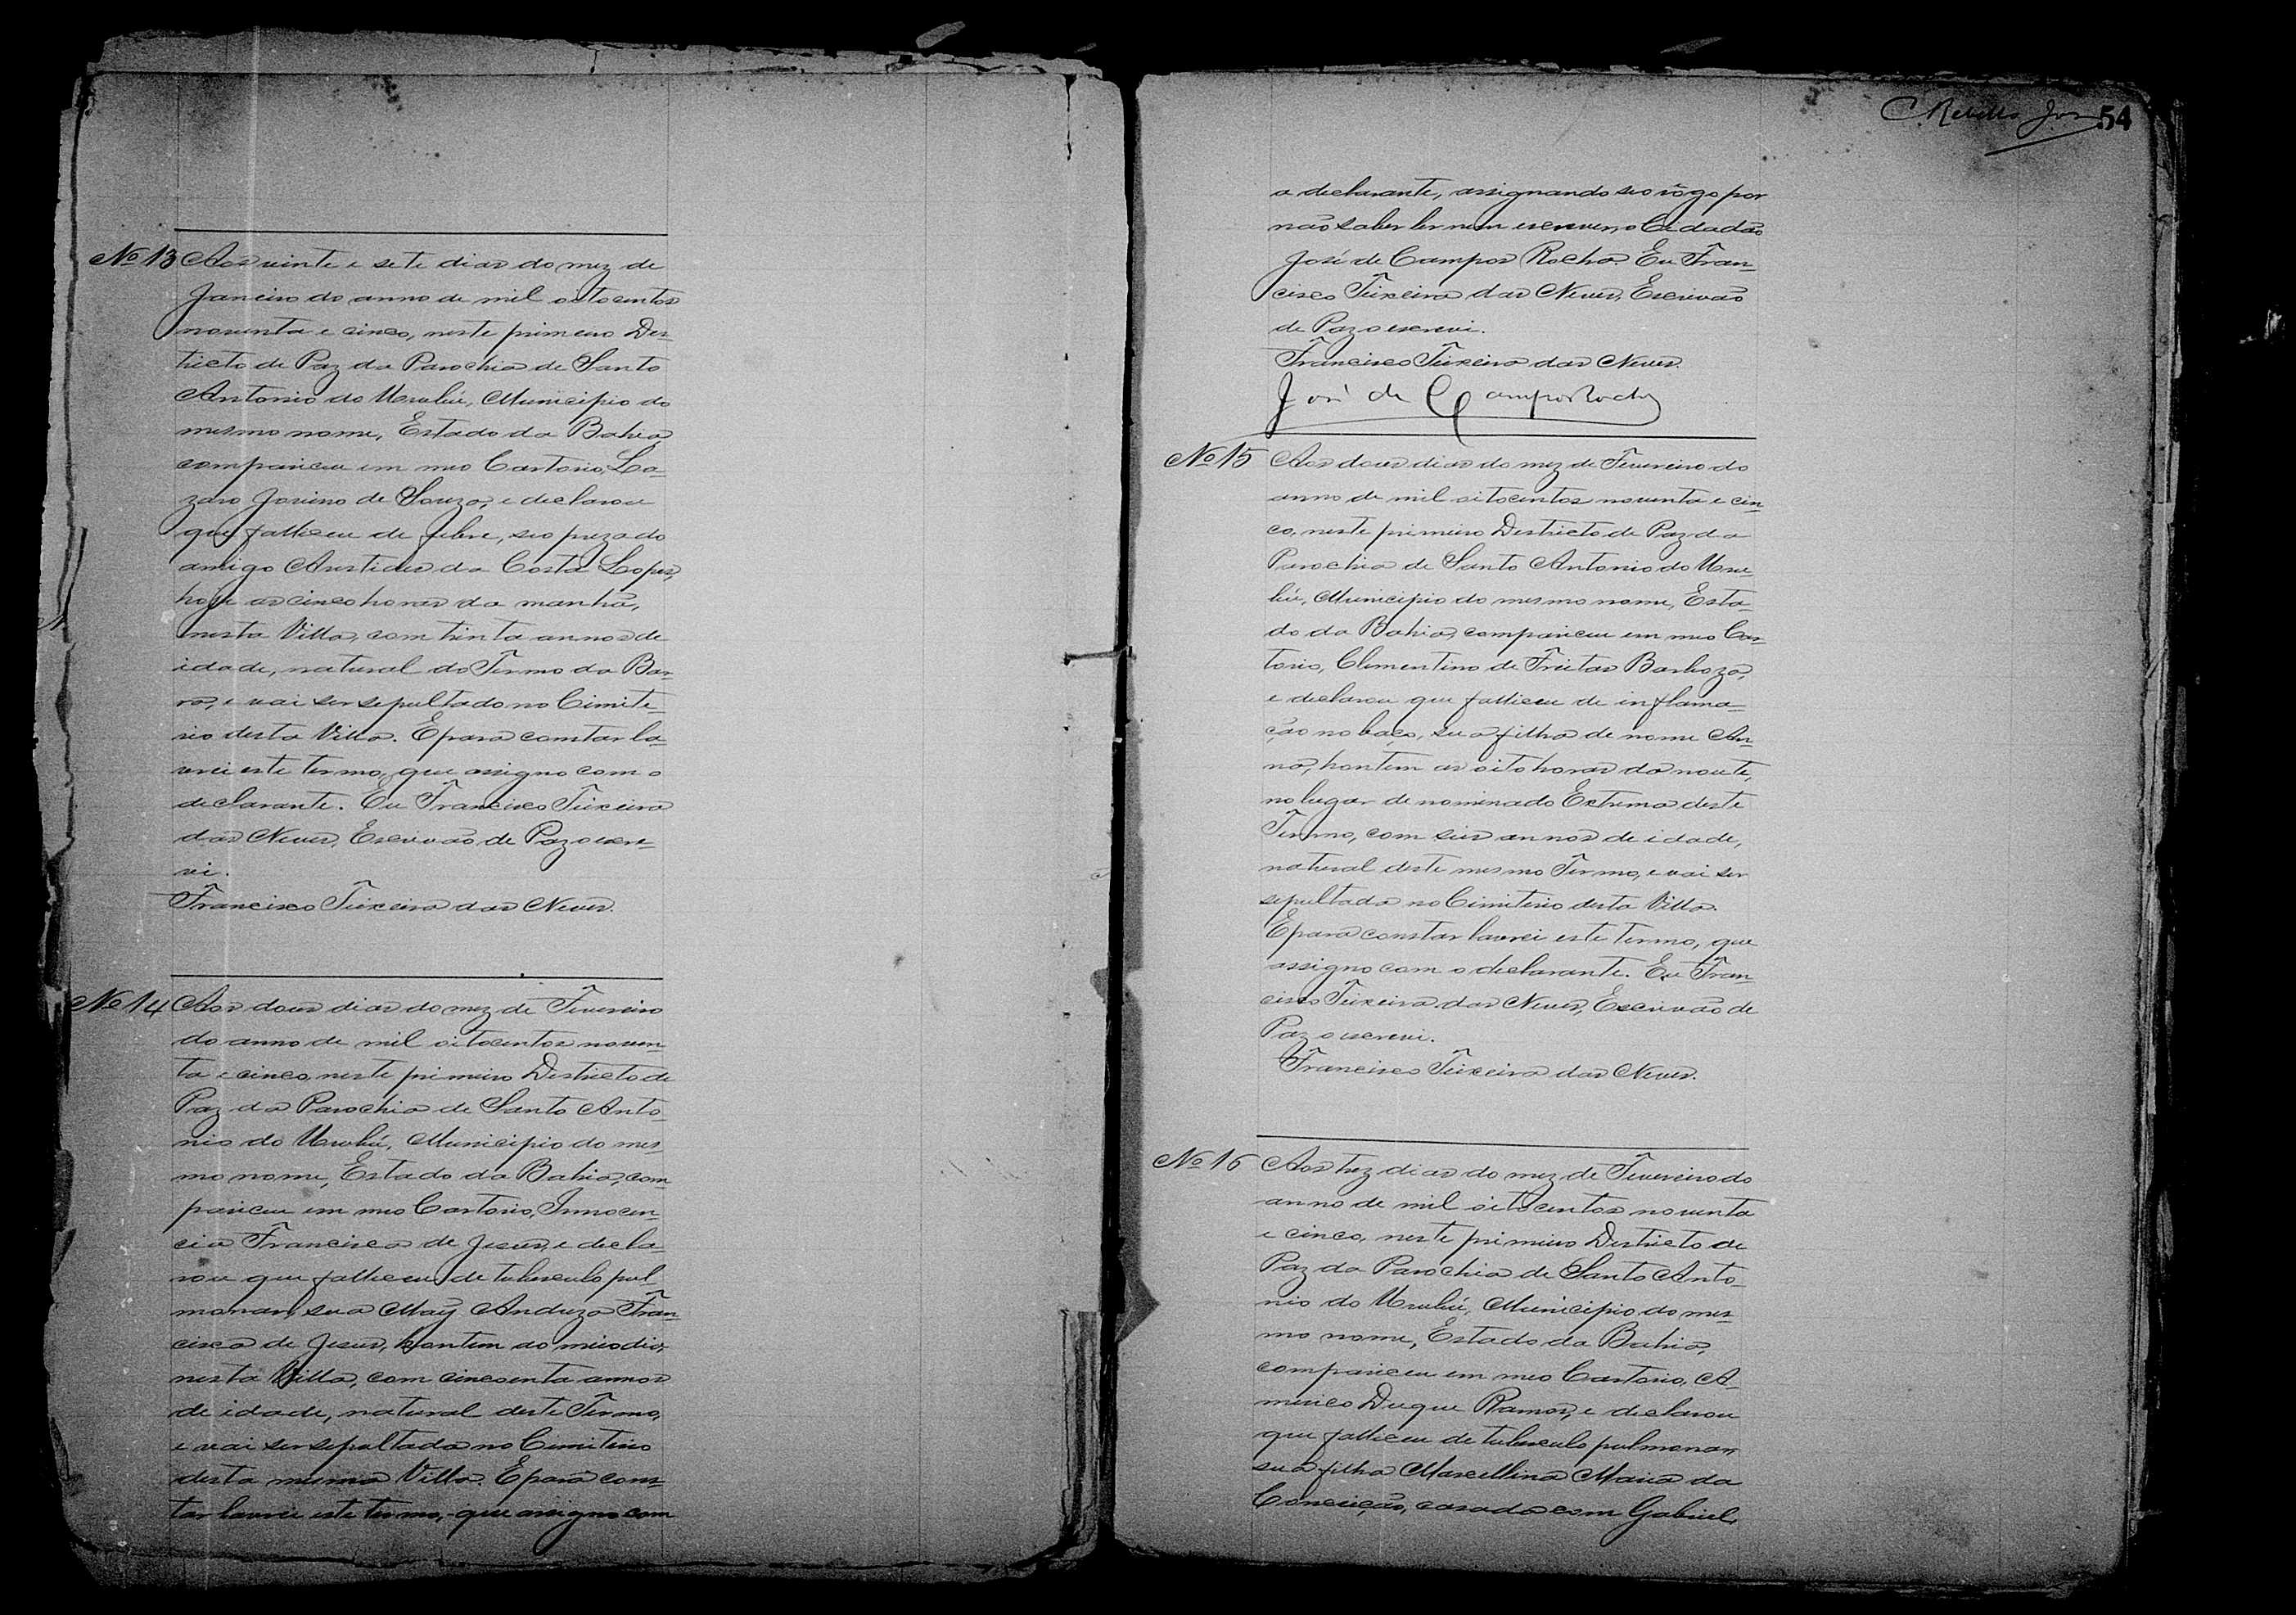 Nº 13 Aos vinte e sete dias do mez de
Janeiro do anno de mil oitocentos
noventa e cinco, neste primeiro Des-
tricto de Paz da Parochia de Santo
Antonio do Urubú, Municipio do
mesmo nome, Estado da Bahia,
compareceu em meo Cartorio, La-
zaro Jovino de Souza, e declarou
que falleceu de febre, seo prezado
amigo Aristides da Costa Lopes,
hoje as cinco horas da manhã,
nesta Villa, com trinta annos de
idade, natural do Termo da Bar-
ra, e vai ser sepultado no Cimite-
rio desta Villa. E para constar la-
vrei este termo, que assigno com o
declarante. Eu Francisco Teixeira
das Neves, Escrivão de Paz o escre-
vi.
Francisco Teixeira das Neves.
Nº 14 Aos dous dias do mez de Fevereiro
do anno de mil oitocentos noven-
ta e cinco, neste primeiro Destricto de
Paz da Parochia de Santo Anto-
nio do Urubú, Municipio do mes-
mo nome, Estado da Bahia, com-
pareceu em meo Cartorio, Innocen-
cia Francisca de Jesus, e decla-
rou que falleceu de tuberculo pul-
monar, sua Maỹ Anduza Fran-
cisca de Jesus, hontem ao meio dia,
nesta Villa, com cincoenta annos
de idade, natural deste Termo,
e vai ser sepultada no Cimiterio
desta mesma Villa. E para cons-
tar lavrei este termo, que assigno com
54
a declarante, assignando seo rôgo por
não saber ler nem escrever, o Cidadão
José de Campos Rocha. Eu Fran-
cisco Teixeira das Neves, Escrivão
de Paz o escrevi.
Francisco Teixeira das Neves.
José de Campos Rocha
Nº 15 Aos dous dias do mez de Fevereiro do
anno de mil oitocentos noventa e cin-
co, neste primeiro Destricto de Paz da
Parochia de Santo Antonio do Uru-
bú, Municipio do mesmo nome, Esta-
do da Bahia, compareceu em meo Car-
torio, Clementino de Freitas Barboza,
e declarou que falleceu de inflama-
ção no baço, sua filha de nome An-
na, hontem as oito horas da noute,
no lugar denominado Extrema deste
Termo, com seis annos de idade,
natural deste mesmo Termo, e vai ser
sepultada no Cimiterio desta Villa.
E para constar lavrei este termo, que
assigno com o declarante. Eu Fran-
cisco Teixeira das Neves, Escrivão de
Paz o escrevi.
Francisco Teixeira das Neves.
Nº 16 Aos trez dias do mez de Fevereiro do
anno de mil oitocentos noventa
e cinco, neste primeiro Destricto de
Paz da Parochia de Santo Anto-
nio do Urubú, Municipio do mes-
mo nome, Estado da Bahia,
compareceu em meo Cartorio, A-
merico Duque Ramos, e declarou
que falleceu de tuberculo pulmonar,
sua filha Marcellina Maria da
Conceição, casada com Gabriel,